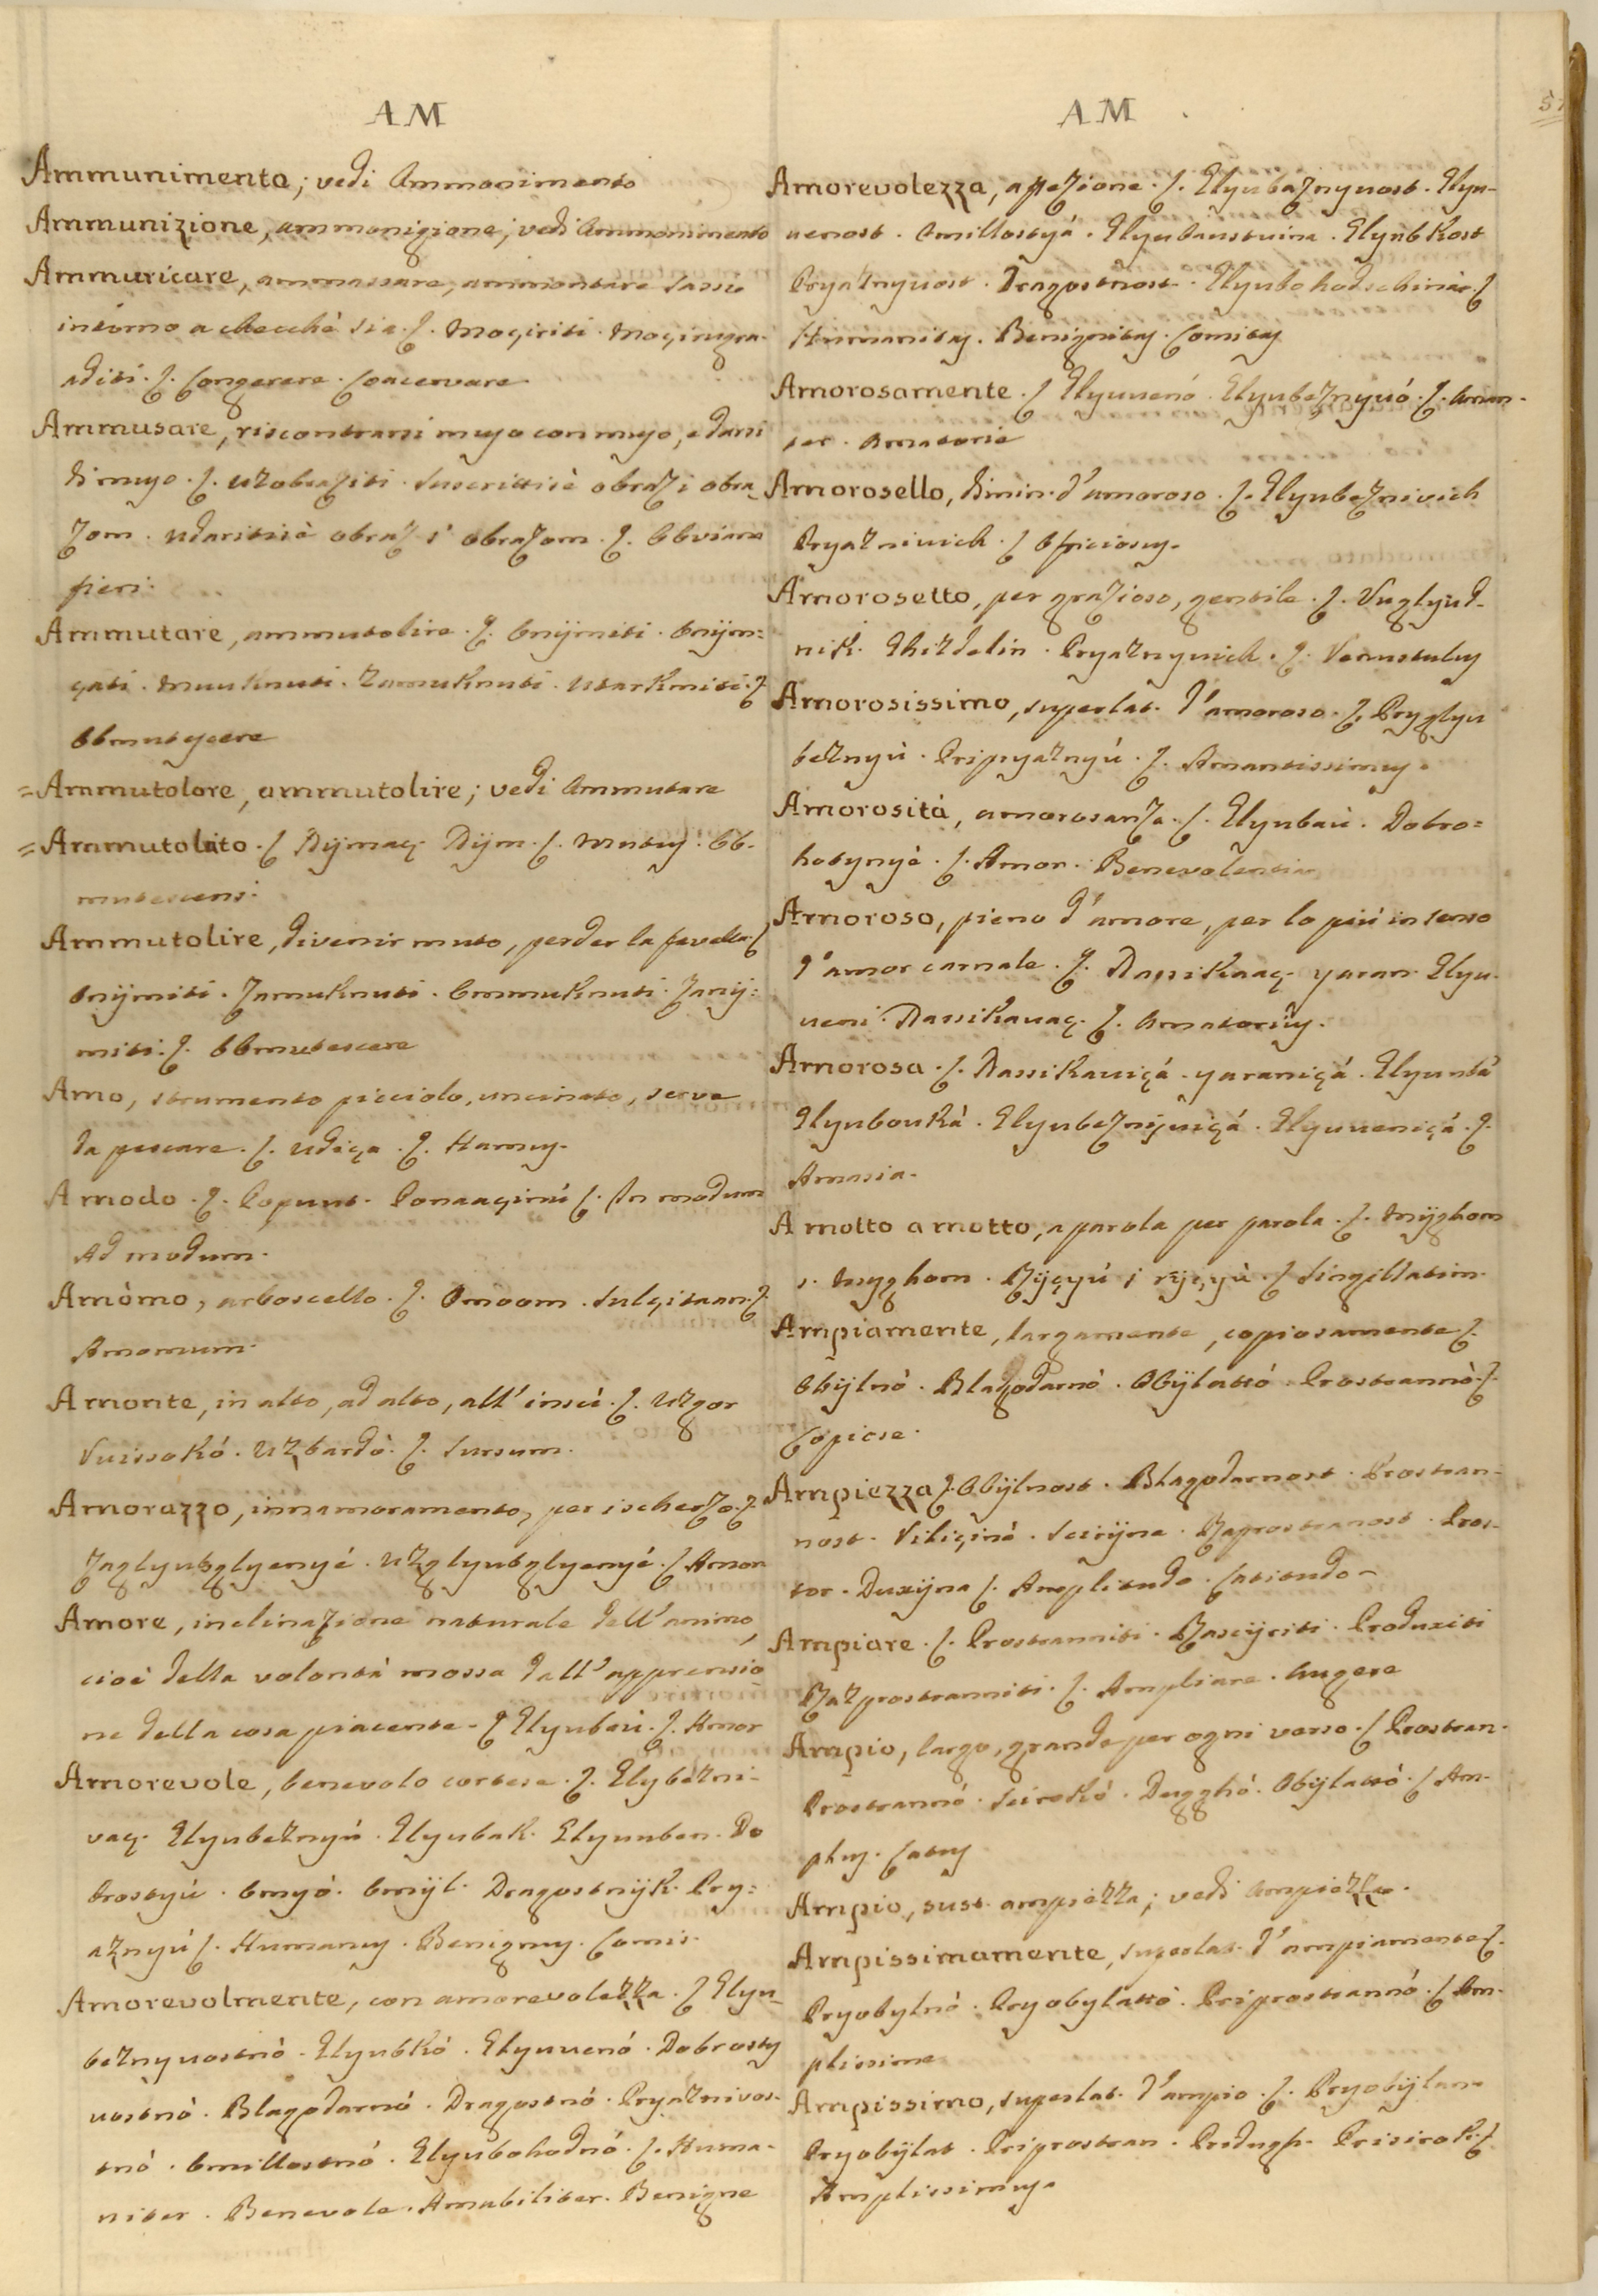 AM
Ammunimento; vedi Ammonimento
Ammunizione, ammonizione; vedi Ammonimento
Ammuricare, ammassare, ammontare sassi
intorno a checchè sia. Moçiriti. Moçirugra-
diti. Congerere. Coacervare.
Ammusare, riscontrarsi muso con muso, e darsi
di muso. Uzobraziti. Suscrittisè obraz i obra-
zom. Udaritisè obraz s' obrazom. Obviam
fieri.
Ammutare, ammutolire. Onijmiti. Onijm=
çati. Muuknuti. Zamuknuti. Utarkmiti.
Obmutescere
=Ammutolare, ammutolire; vedi Ammutare
=Ammutolato. Nijmaç. Nijm. Mutus. Ob-
mutescens.
Ammutolire, divenir muto, perder la favella.
Onijmiti. Zamuknuti. Ommuknuti. Zanij=
miti. Obmutescere
Amo, strumento picciolo, uncinato, serve
da pescare. Udiça. Hamus.
A modo. Poput. Ponaaçinú. In modum
Ad modum.
Amòmo, arboscello. Omoom. Amomum.
A monte, in alto, ad alto, all'insù. Uzgor
Vuissokó. Uzbardò. Sursum.
Amorazzo, innamoramento, per ischerzo.
Zaglyubglyenyé. Uzglyubglyenyé. Amor
Amore, inclinazione naturale dell'animo,
cioè della volontà mossa dall'apprensio
ne della cosa piacente. Glyubaú. Amor
Amorevole, benevolo cortese. Glybezni-
vaç. Glyubeznyú. Glyubak. Glyuuben. Do
brostyú. Omyó. Omijl. Dragostnijk. Pry=
aznyú. Humanus. Benignus. Comis.
Amorevolmente, con amorevolezza. Glyu-
beznyuostnò. Glyubkó. Glyuuenó. Dobrosty
uostnò. Blagodarnó. Dragostnó. Pryaznivos-
tnó. Omillostnó. Glyubohodnó. Huma-
niter. Benevole. Amabiliter. Benigne
AM
Amorevolezza, affezione. Glyubaznyuost. Glyu-
uenost. Omillostyá. Glyubaustuina. Glyubkost
Pryaznyuost. Dragostnost. Glyubohodschinia.
Humanitas. Benignitas. Comitas
Amorosamente. Glyuuenó. Glyubeznyuó. Aman-
ter. Amatorie
Amorosello, dimin. d'amoroso. Glyubeznivich
Pryaznivich. Officiosus.
Amorosetto, per grazioso, gentile. Vuglyud-
nik. Ghizdelin. Pryaznyuich. Venustulus
Amorosissimo, superlat. d'amoroso. Pryglyu
beznyú. Pripryaznyú. Amantissimus.
Amorosità, amorosanza. Glyubaú. Dobro=
hotynyè. Amor. Benevolentia
Amoroso, pieno d'amore, per lo più in senso
d'amor carnale. Nassikaaç. yaran. Glyu-
ueni. Nassikauaç. Amatorius.
Amorosa. Nassikauiçá. yaraniçá. Glyuubá
Glyubouká. Glyubeznijuiçá. Glyuueniçá.
Amasia.
A motto a motto, a parola per parola. Mijghom
s. Mygghom. Rijçyú i rijçyù. Singillatim.
Ampiamente, largamente, copiosamente.
Obijlnò. Blagodarnò. Obijlattó. Prostrannò.
Copiose.
Ampiezza. Obijlnost. Blagodarnost. Prostran-
nost. Viliçinè. Scirijne. Raprostranost. Pros-
tor. Duxijna. Amplitudo. Latitudo.
Ampiare. Prostranniti. Rascijriti. Produxiti
Razprostranniti. Ampliare. Augere
Ampio, largo, grande per ogni verso. Prostran.
Prostrannó. Scirokó. Dugghó. Obijlattó. Am-
plus. Latus
Ampio, sust. ampiezza; vedi Ampiezza.
Ampissimamente, superlat. d'ampiamente.
Pryobylnó. Pryobylattò. Priprostrannó. Am-
plissime
Ampissimo, superlat. d'ampio. Pryobijlan.
Pryobijlat. Priprostran. Pridugh. Prisirok.
Amplissimus.